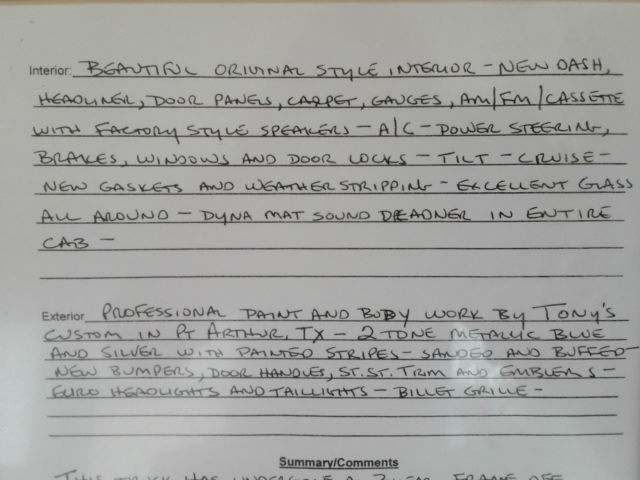 Interior: BEAUTIFUL ORIGINAL STYLE INTERIOR - NEW DASH,
HEADLINER, DOOR PANELS, CARPET, GAUGES, AM/FM/CASSETTE
WITH FACTORY STYLE SPEAKERS - A/C - POWER STEERING,
BRAKES, WINDOWS AND DOOR LOCKS - TILT - CRUISE -
NEW GASKETS AND WEATHER STRIPPING - EXCELLENT GLASS
ALL AROUND - DYNA MAT SOUND DEADNER IN ENTIRE
CAB -
Exterior PROFESSIONAL PAINT AND BODY WORK BY TONY'S
CUSTOM IN PT ARTHUR, TX - 2 TONE METALLIC BLUE
AND SILVER WITH PAINTED STRIPES - SANDED AND BUFFED -
NEW BUMPERS, DOOR HANDLES, ST. ST. TRIM AND EMBLEMS -
EURO HEADLIGHTS AND TAILLIGHTS - BILLET GRILLE -
Summary/Comments
THIS TRUCK HAS UNDERGONE A 2 YEAR FRAME OFF